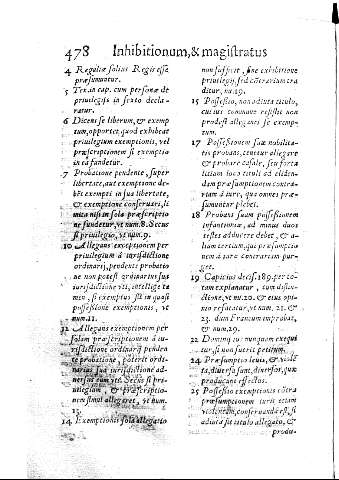 478 Inhibitionum, & magistratus
4 Regaliæ solius Regis esse
præsumuntur.
5 Tex. in cap. cum personæ de
priuilegijs in sexto decla-
ratur.
6 Dicens se liberum, & exemp
tum, oportet, quod exhibeat
priuilegium exemptionis, vel
præscriptionem si exemptio
in ea fundetur.
7 Probatione pendente, super
libertate, aut exemptione de-
bet exempti in sua libertate,
& exemptione conseruari, li
mita nisi in sola præscriptio
ne fundetur, vt num. 8. Secus
si priuilegio, vt num. 9.
10 Allegans exemptionem per
priuilegium à iurisdictione
ordinarij, pendente probatio
ne non potest ordinarius sua
iurisdictione vti,
mo, si exemptus sit in quasi
possessione exemptionis, vt
num. 11.
12 Allegans exemptionem per
solam præscriptionem à iu-
risdictione ordinarij penden
te probatione, poterit ordi-
narius sua iurisdictione ad-
uersus eum vti. Secus si pri-
uilegium, & præscriptio-
nem simul allegaret, vt num.
13.
14 Exemptionis sola allegatio
non sufficit, sine exhibitione
priuilegij, sed contrarium tra
ditur, nu. 29.
15 Possessio, non adiuta titulo,
cui ius commune resistit non
prodest alleganti se exemp-
tum.
17 Possessionem suæ nobilita-
tis probans, tenetur allegare
& probare casale, seu forta
litium loco tituli ad eliden-
dam præsumptionem contra-
riam à iure, qua omnes præ-
sumuntur plebei.
18 Probans suam possessionem
infantioniæ, ad minus duos
testes adducere debet, & a-
lium tertium, qui præsumptio
nem à iure contrariam pur-
get.
19 Capicius decis. 189. per to-
tam explanatur, cum distin-
ctione, vt nu. 20. & eius opi-
nio refutatur, vt num. 21. &
23. dum Francum improbat,
& num. 29.
22 Dominium nunquam exequi
tur, si non fuerit petitum.
24 Præsumptio leuis, & violē
ta, diuersa sunt, diuersos, quæ
producunt effectus.
25 Possessio exemptionis cōtra
præsumptionem iuris etiam
violentam, conseruanda est, si
adiuta sit titulo allegato, &
produ-